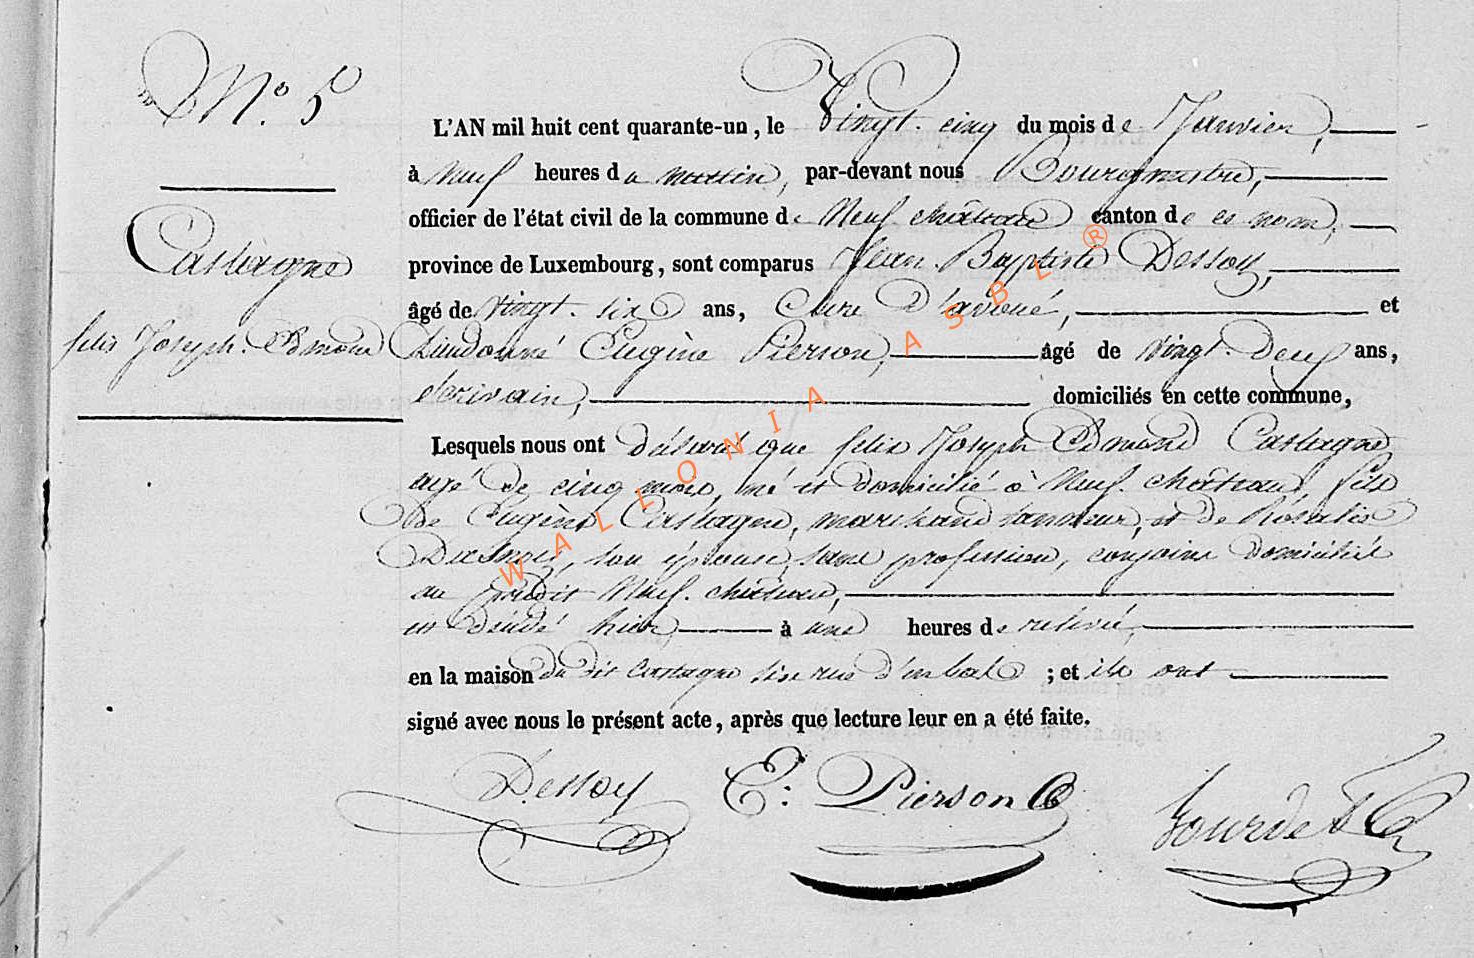 N.º 5
Castagne
felix Joseph Edmond
L'AN mil huit cent quarante-un, le Vingt-cinq du mois de Janvier,
à Neuf heures du matin, par-devant nous Bourgmestre,
officier de l'état civil de la commune de Neufchâteau canton de ce nom,
province de Luxembourg, sont comparus Jean-Baptiste Dessoy,
âgé de vingt-six ans, Clerc d'avoué, et
Dieudonné Eugène Pierson, âgé de vingt-deux ans,
écrivain, domiciliés en cette commune,
Lesquels nous ont déclaré que felix Joseph Edmond Castagne
agé de cinq mois, né et domicilié à Neufchâteau, fils
de Eugène Castagne, marchand tanneur, et de Rosalie
son épouse, sans profession, conjoints domiciliés
au prédit Neufchâteau,
est décédé hier à une heures de relevée,
en la maison du dit Castagne sise rue d'en bas ; et ils ont
signé avec nous le présent acte, après que lecture leur en a été faite.
Dessoy E: Pierson Gourdet
WALLONIA ASBL ®